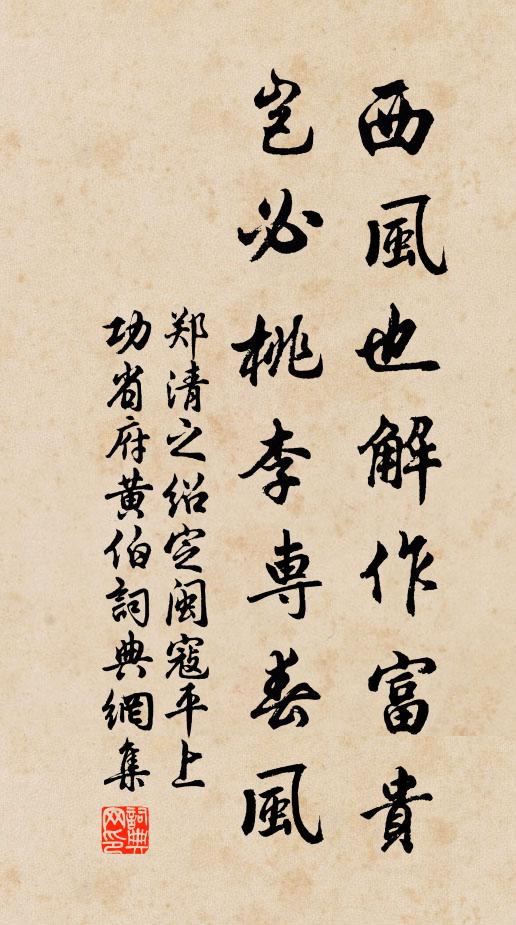 西風也解作富貴
岂必桃李専春風
郑清之绍定闽寇平上
功省府黄伯詞典網集
詞典网印